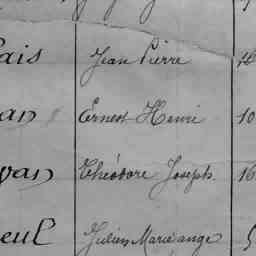 ais Jean Pierre
an Ernest Henri 10
van Théodore Joseph 16
eul Julien Marie ange